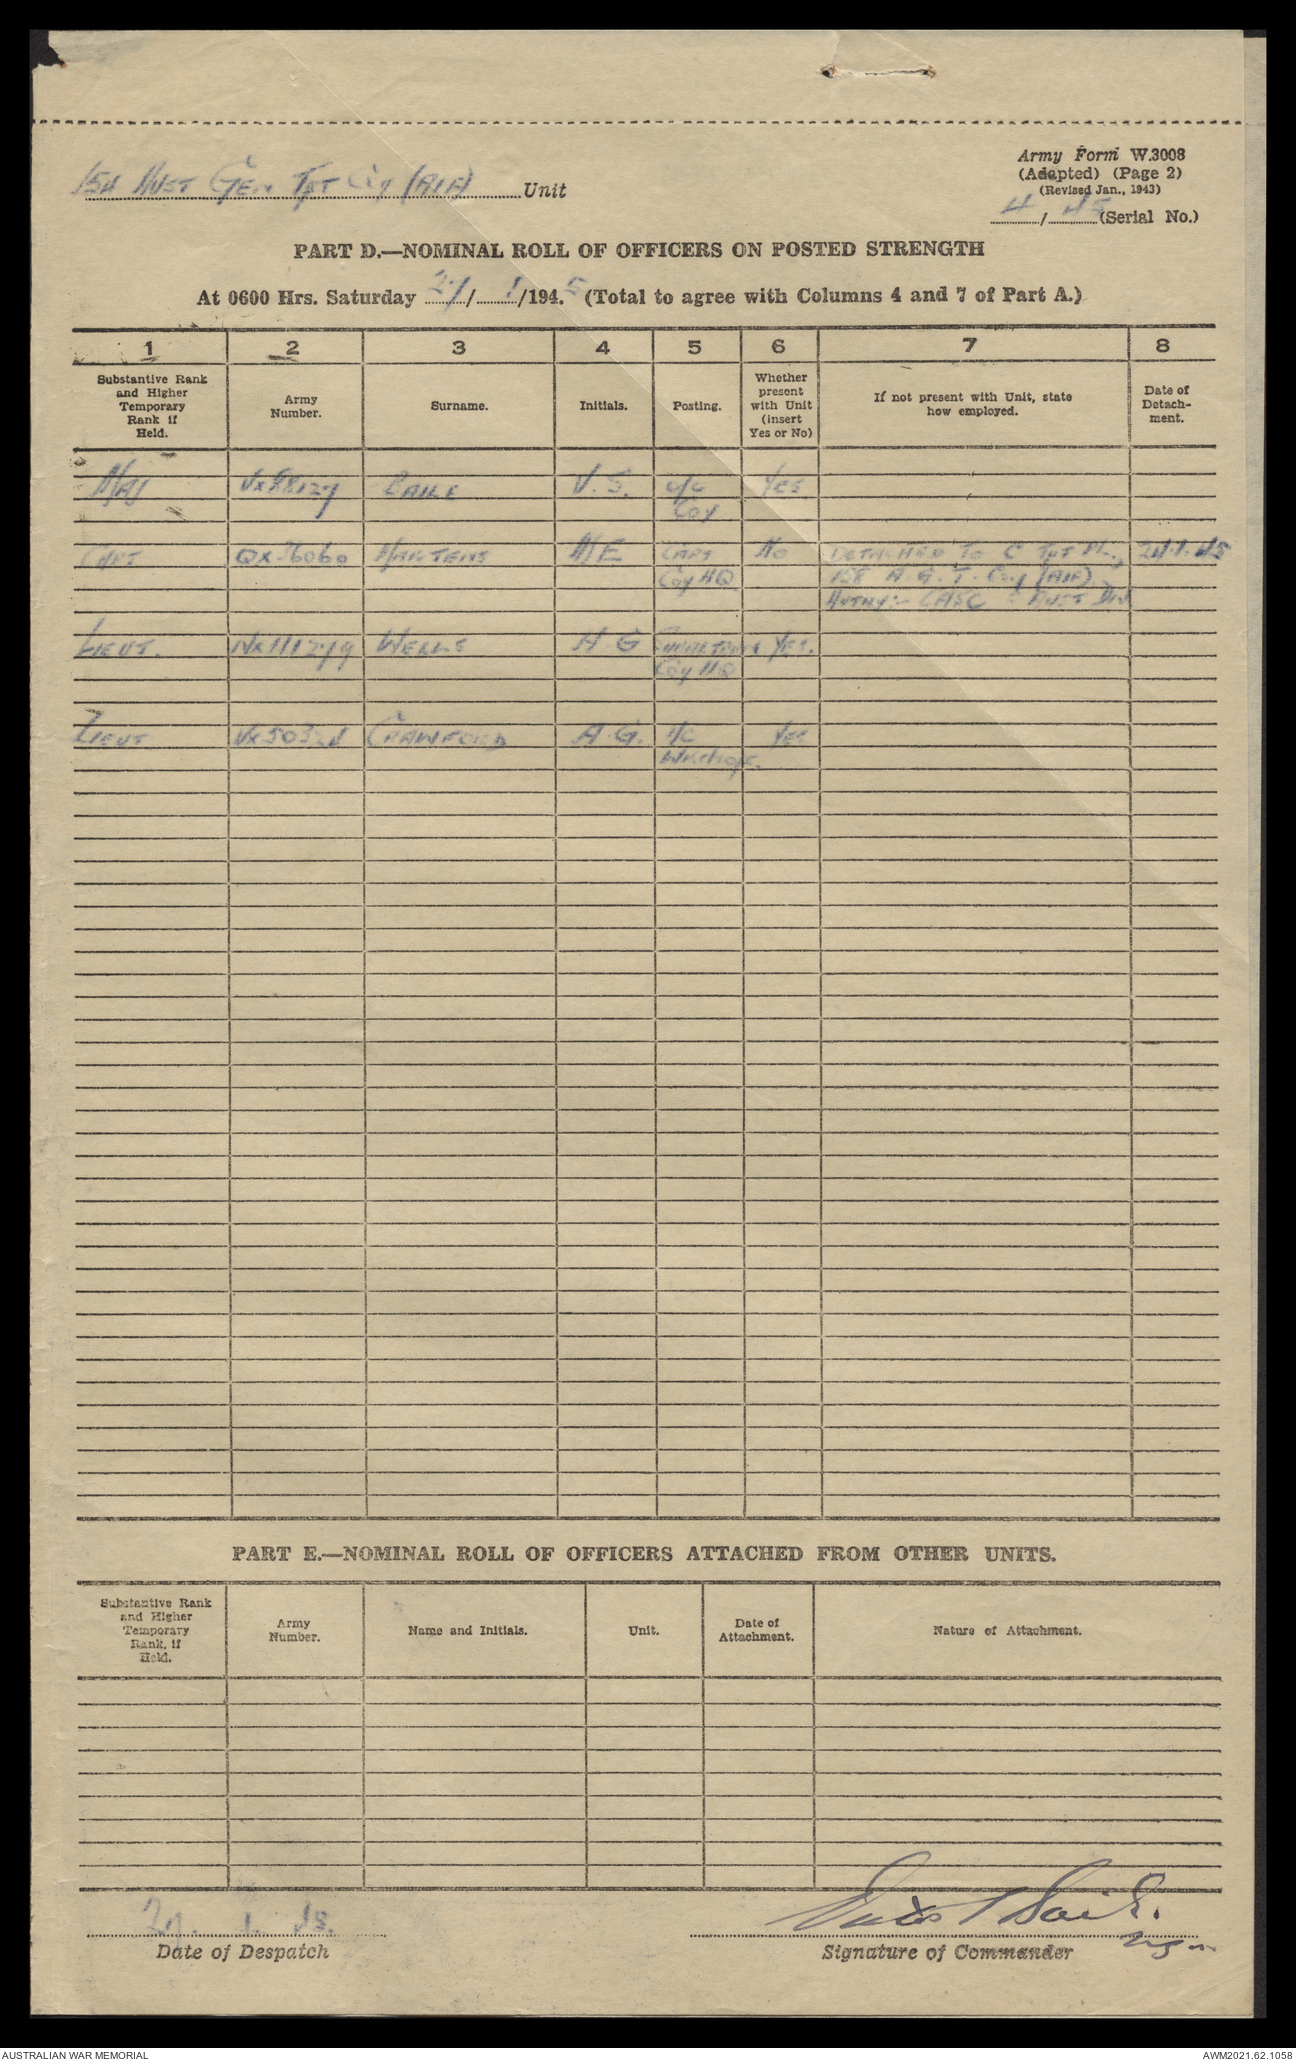 154 Aust Gen Tpt Coy (AIF) Unit
Army Form W.3008
(Adapted) (Page 2)
(Revised Jan., 1943)
4/45 (Serial No.)
PART D.—NOMINAL ROLL OF OFFICERS ON POSTED STRENGTH
At 0600 Hrs. Saturday 27/1/1945 (Total to agree with Columns 4 and 7 of Part A.)
1 2 3 4 5 6 7 8
Substantive Rank and Higher Temporary Rank if Held.
Army Number.
Surname.
Initials.
Posting.
Whether present with Unit (insert Yes or No)
If not present with Unit, state how employed.
Date of Detach-ment.
Maj V. S. O/C Yes
Coy
Capt QX36060 Martens M E Capt No Detached to C Tpt Pl., 24.1.45
Coy HQ 158 A. G. T. Coy (AIF)
Authy:- CASC Aust Div
Lieut. NX111279 Wells H G Yes.
Coy HQ
Lieut Crawford A. G. I/C Yes
Wkshops.
PART E.—NOMINAL ROLL OF OFFICERS ATTACHED FROM OTHER UNITS.
Substantive Rank and Higher Temporary Rank, if Held.
Army Number.
Name and Initials.
Unit.
Date of Attachment.
Nature of Attachment.
27. 1. 45.
Date of Despatch
Signature of Commander
AUSTRALIAN WAR MEMORIAL
AWM2021.62.1058